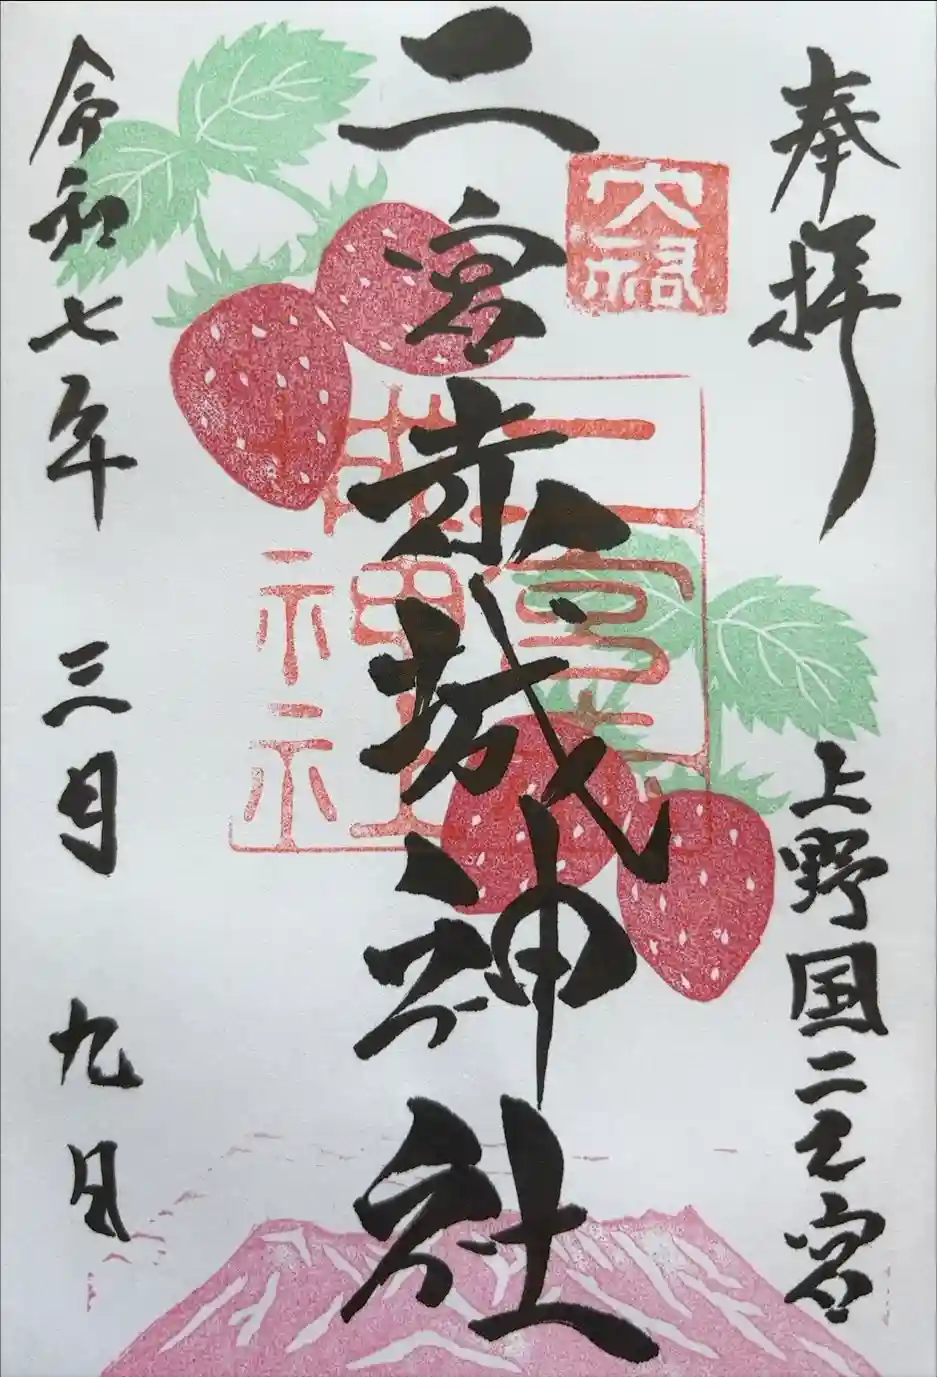 奉拝
上野国二之宮
二宮赤城神社
二宮赤
城神社
令和七年 三月 九日